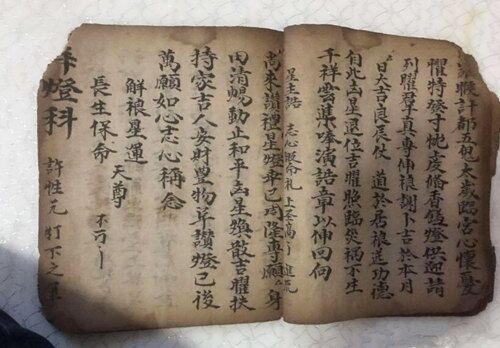 計都五鬼太歲臨宮心懷憂
懼特發寸忱虔修香燈供迎請
列曜尊真專伸禳謝卜吉於本月
日大吉良辰仗 道於居禳送功德
自此凶星退位吉曜照臨災禍不生
千祥雲集唪演誥章以伸回向
星主誥 志心皈命礼 上圣高
尚來讚禮星燈畢已周隆專願 身
田清暢動止和平凶星煥散吉曜扶
持家吉人安財豐物阜讚燈已後
萬願如心志心稱念
解禳星運
天尊
長生保命 不可
燈科 許性元 打下之